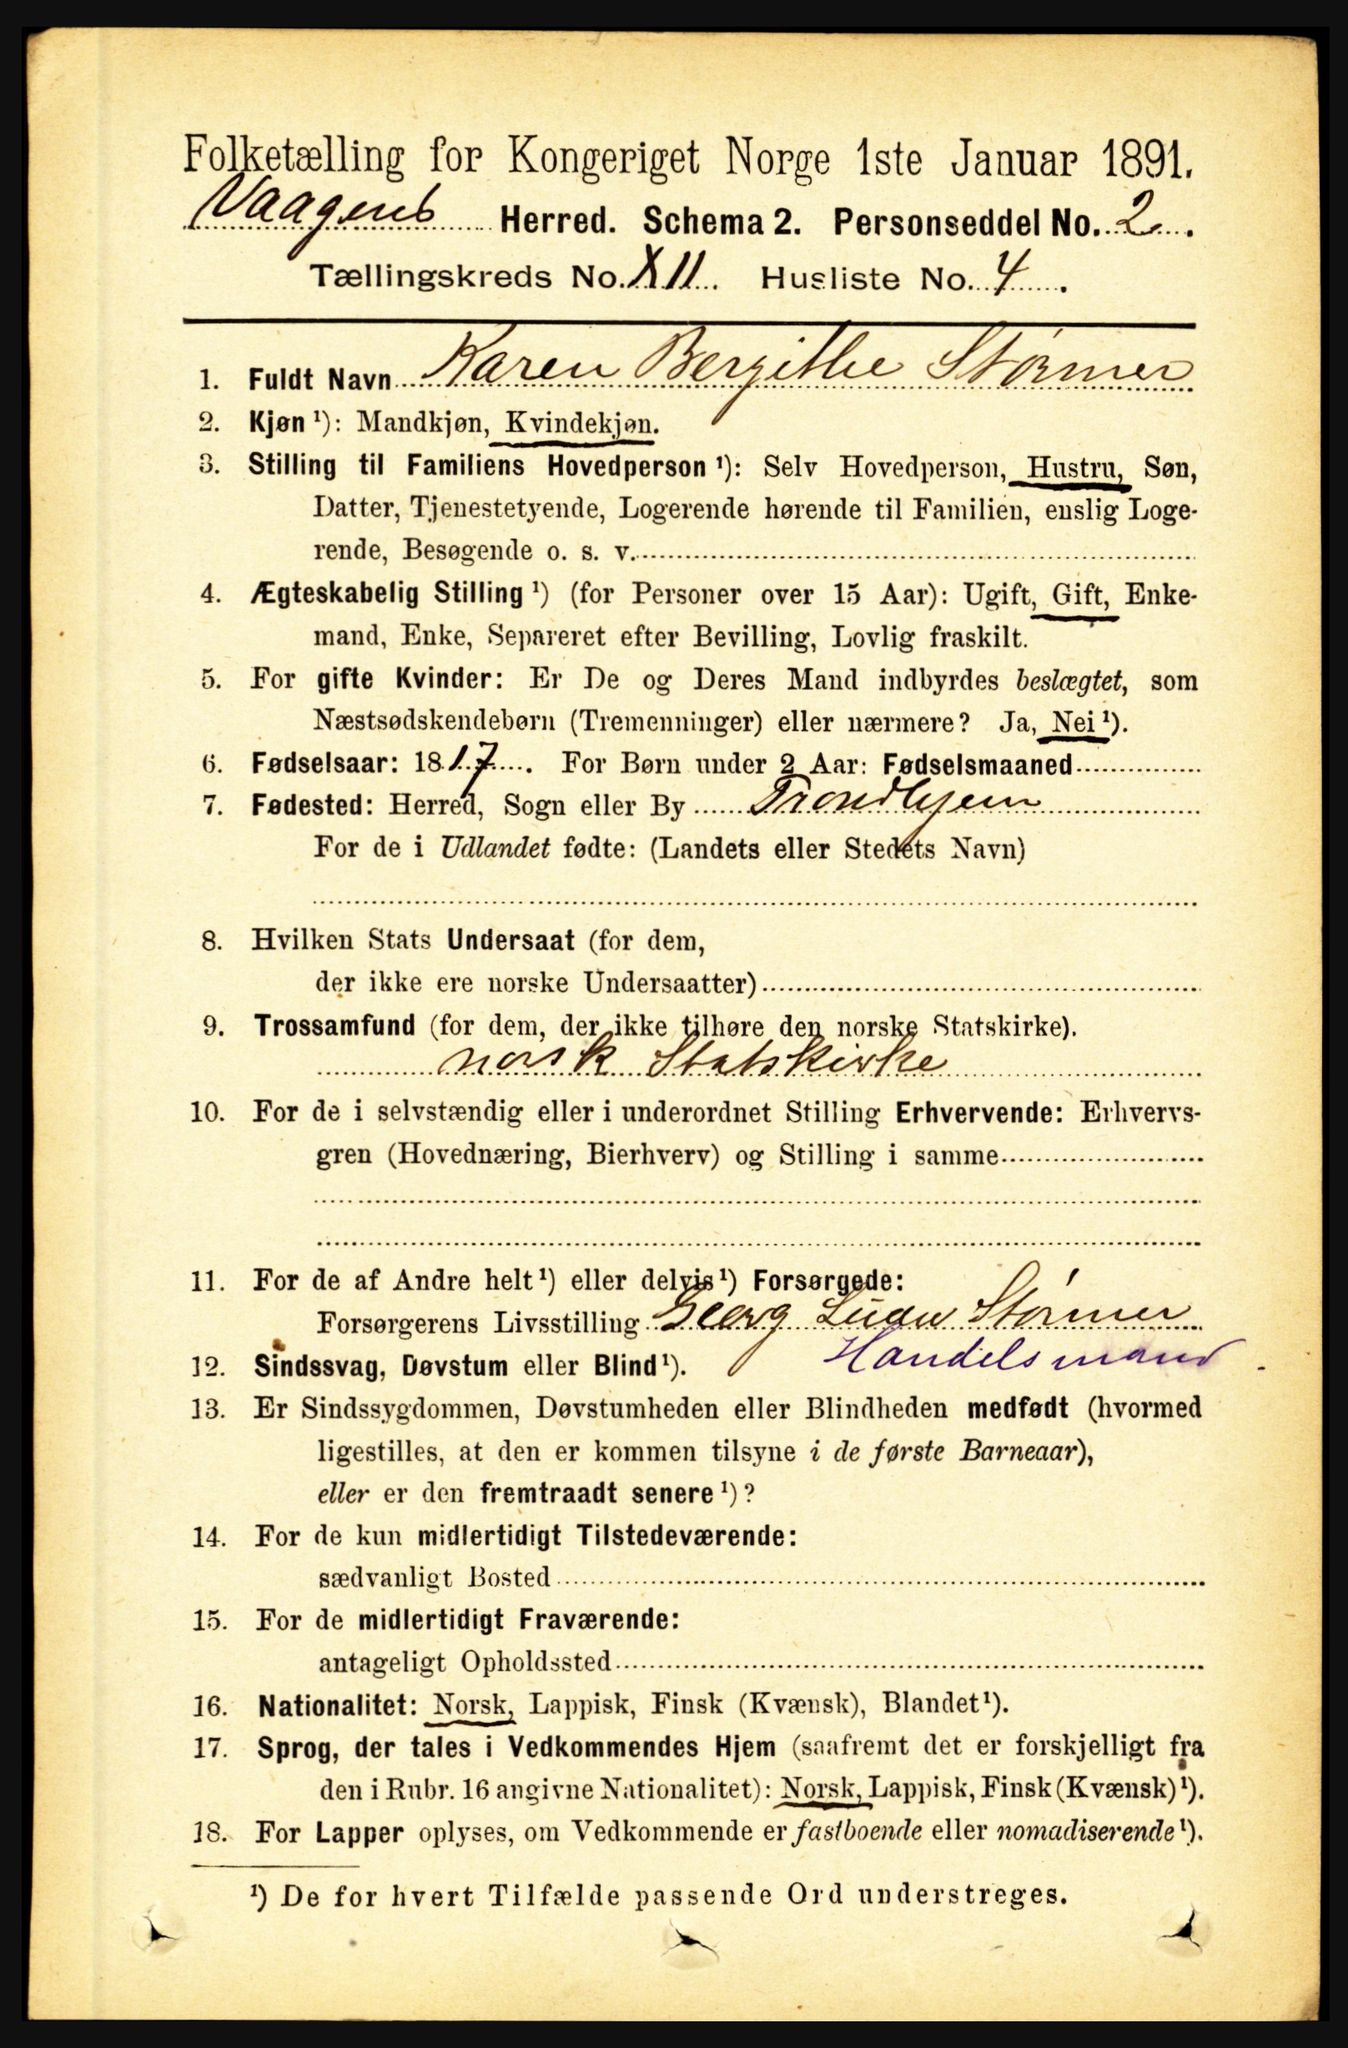 Folketælling for Kongeriget Norge 1ste Januar 1891.
Vaagens Herred. Schema 2. Personseddel No. 2.
Tællingskreds No. XII. Husliste No. 4.
1. Fuldt Navn Karen Bergithe Størmer
2. Kjøn ¹): Mandkjøn, Kvindekjøn.
3. Stilling til Familiens Hovedperson ¹): Selv Hovedperson, Hustru, Søn,
Datter, Tjenestetyende, Logerende hørende til Familien, enslig Loge-
rende, Besøgende o. s. v.
4. Ægteskabelig Stilling ¹) (for Personer over 15 Aar): Ugift, Gift, Enke-
mand, Enke, Separeret efter Bevilling, Lovlig fraskilt.
5. For gifte Kvinder: Er De og Deres Mand indbyrdes beslægtet, som
Næstsødskendebørn (Tremenninger) eller nærmere? Ja, Nei ¹).
6. Fødselsaar: 1817. For Børn under 2 Aar: Fødselsmaaned
7. Fødested: Herred, Sogn eller By Trondhjem
For de i Udlandet fødte: (Landets eller Stedets Navn)
8. Hvilken Stats Undersaat (for dem,
der ikke ere norske Undersaatter)
9. Trossamfund (for dem, der ikke tilhøre den norske Statskirke).
norsk Statskirke
10. For de i selvstændig eller i underordnet Stilling Erhvervende: Erhvervs-
gren (Hovednæring, Bierhverv) og Stilling i samme
11. For de af Andre helt ¹) eller delvis ¹) Forsørgede:
Forsørgerens Livsstilling Georg Størmer
Handelsmand
12. Sindssvag, Døvstum eller Blind ¹).
13. Er Sindssygdommen, Døvstumheden eller Blindheden medfødt (hvormed
ligestilles, at den er kommen tilsyne i de første Barneaar),
eller er den fremtraadt senere ¹)?
14. For de kun midlertidigt Tilstedeværende:
sædvanligt Bosted
15. For de midlertidigt Fraværende:
antageligt Opholdssted
16. Nationalitet: Norsk, Lappisk, Finsk (Kvænsk), Blandet ¹).
17. Sprog, der tales i Vedkommendes Hjem (saafremt det er forskjelligt fra
den i Rubr. 16 angivne Nationalitet): Norsk, Lappisk, Finsk (Kvænsk) ¹).
18. For Lapper oplyses, om Vedkommende er fastboende eller nomadiserende ¹).
¹) De for hvert Tilfælde passende Ord understreges.